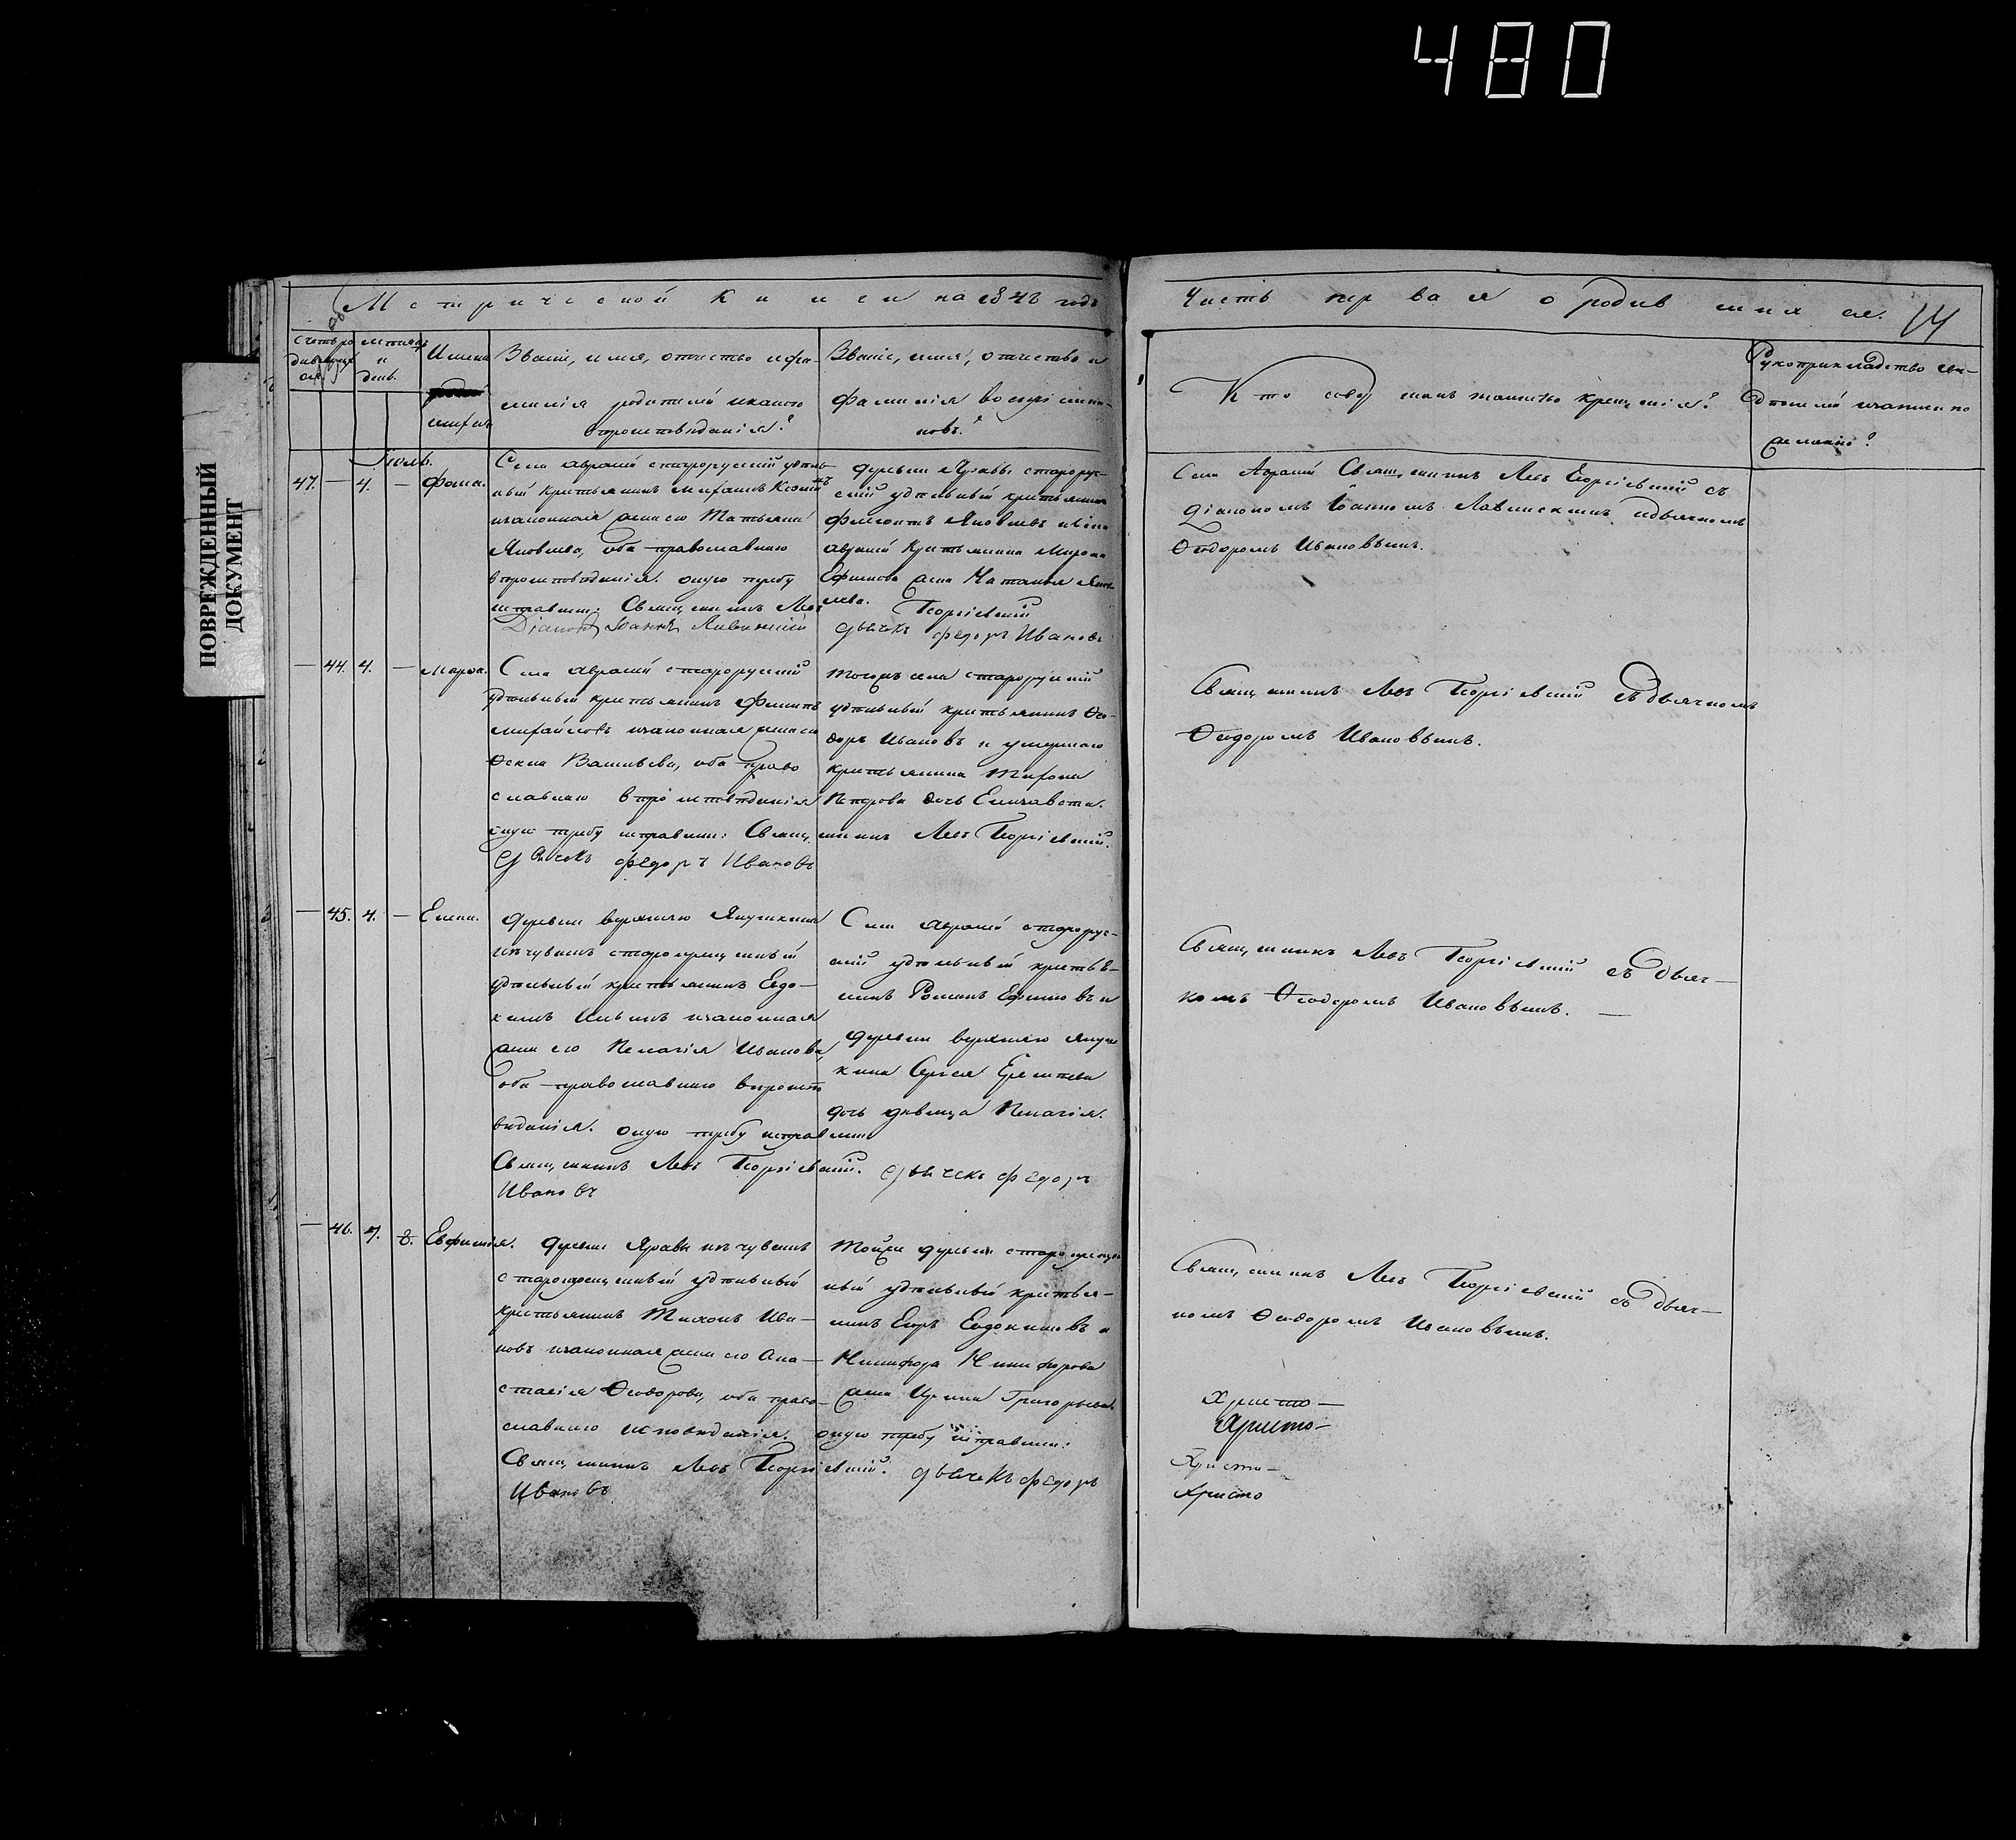 480
ПОВРЕЖДЕННЫЙ
ДОКУМЕНТ
Метрической книги на 1842 годъ
Часть первая о родившихся.
14
Счетъ ро
дившихся
мѣсяцъ
и
день.
Имена
Званіе, имя, отчество и фа-
милія родителей и какого
вѣроисповѣданія?
Званіе, имя, отчество и
фамилія воспріемни-
ковъ?
Кто совершалъ таинство крещенія?
Рукоприкладство сви-
дѣтелей
желанію?
Іюль.
47. — 4. — Фома.
Села старорусскій удѣль-
ный крестьянинъ
и законная жена его Татьяна
Яковлева, оба православнаго
вѣроисповѣданія. оную требу
исправили: Священникъ Левъ
Діаконъ Іоаннъ Лавинскій
деревни старорус-
скій удѣльный крестьянинъ
Яковлевъ
крестьянина Мирона
Ефимова жена Наталья Яков-
лева. Георгіевскій
дьячекъ федоръ Ивановъ
Села Священникъ Левъ Георгіевскій съ
Діакономъ Іоанномъ Лавинскимъ и дьячкомъ
Ѳеодоромъ Ивановымъ.
— 44. 4. — Марѳа.
Села старорусскій
удѣльный крестьянинъ Филипъ
михайловъ и законная жена его
Васильева, оба право
славнаго вѣроисповѣданія
оную требу исправили: Священникъ Левъ Георгіевскій.
дьячекъ федоръ Ивановъ
того жъ села старорусскій
удѣльный крестьянинъ Ѳео-
доръ Ивановъ и умершаго
крестьянина
Петрова дочь Елисавета.
Священникъ Левъ Георгіевскій съ дьячкомъ
Ѳеодоромъ Ивановымъ.
— 45. 4. — Елена.
деревни верхняго Якушкина
изъ чувашъ старокрещенный
удѣльный крестьянинъ Евдо-
кимъ Ильинъ и законная
жена его Пелагія Иванова,
оба православнаго вѣроиспо
вѣданія. оную требу исправили
Священникъ Левъ Георгіевскій. дьячекъ федоръ
Ивановъ
Села старорус-
скій удѣльный крестья-
нинъ Романъ Ефимовъ и
деревни верхняго Якуш
кина Сергея
дочь дѣвица Пелагія.
Священникъ Левъ Георгіевскій съ дьяч-
комъ Ѳеодоромъ Ивановымъ. —
— 46. 7. 8. Евфимія.
деревни изъ чувашъ
старокрещенный удѣльный
крестьянинъ Тихонъ Ива-
новъ и законная жена его Ана-
стасія Ѳеодорова, оба право-
славнаго исповѣданія. оную требу исправили:
Священникъ Левъ Георгіевскій. дьячекъ федоръ
Ивановъ
той же деревни старокрещен
ный удѣльный крестья-
нинъ Егоръ Евдокимовъ и
Никифора Никифорова
жена Ирина Григорьева.
Священникъ Левъ Георгіевскій съ дьяч-
комъ Ѳеодоромъ Ивановымъ.
Христо-
Христо-
Христо-
Христо